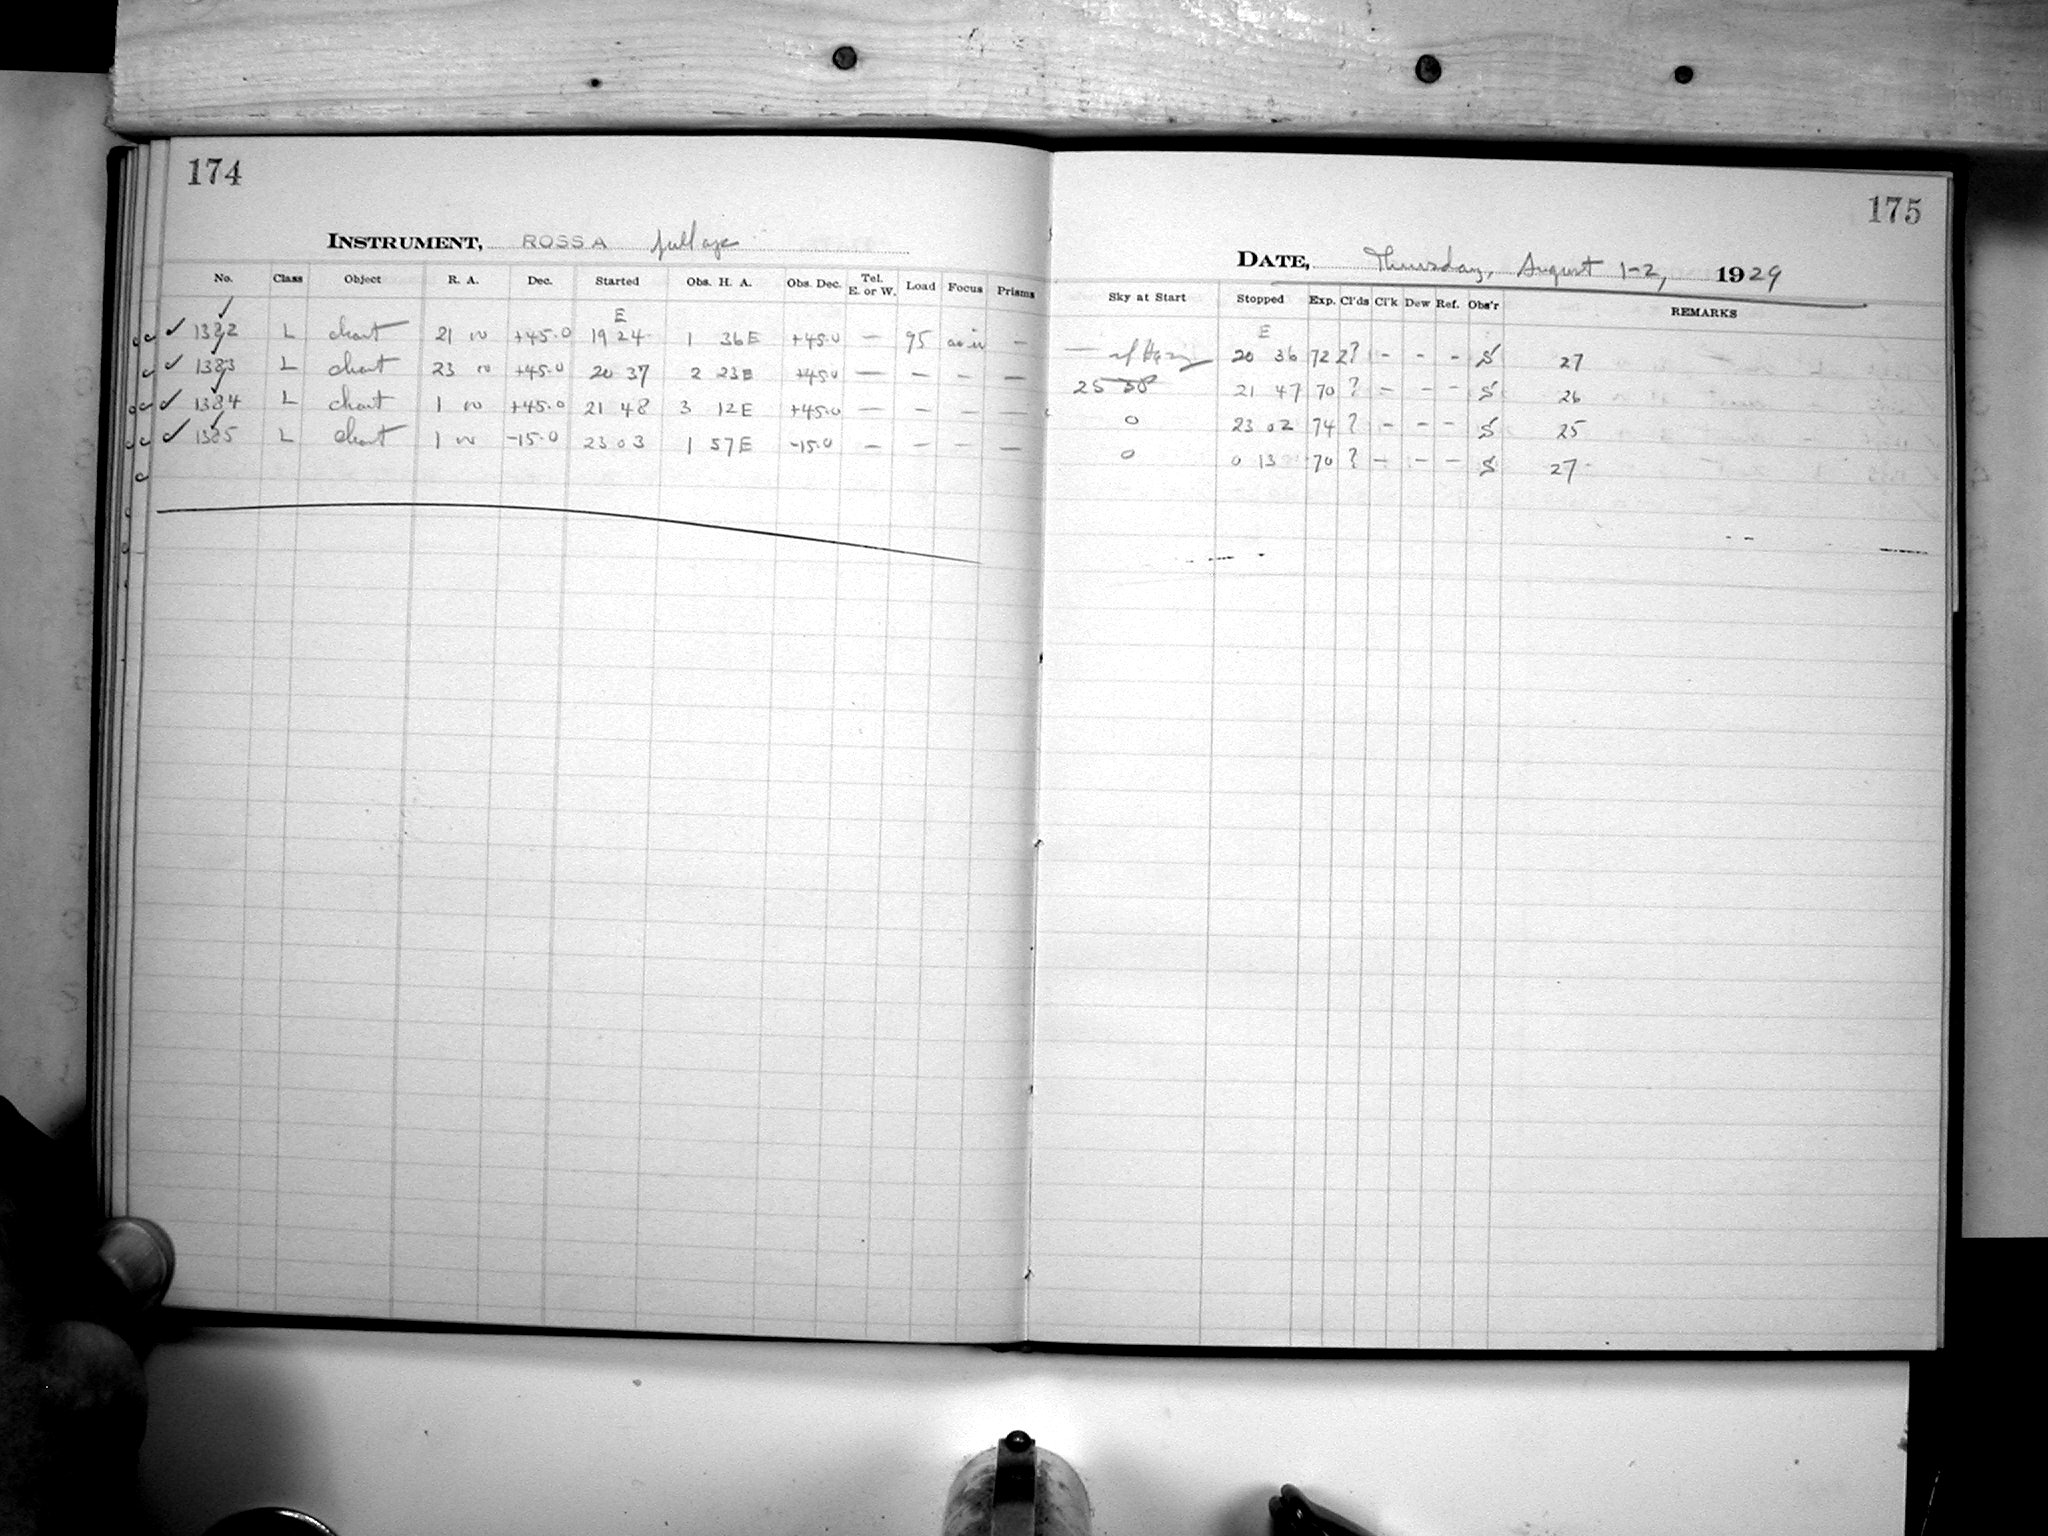 174
INSTRUMENT, ROSS A full ap
No. Class Object R. A. Dec. Started Obs. H. A. Obs. Dec. Tel. E. or W. Load Focus Prisms
E
1382 L chart 21 +45.0 19 24 1 36E +45.0 — 95 as is —
1383 L chart 23 +45.0 20 37 2 23E +45.0 — — — —
1384 L chart 1 +45.0 21 48 3 12E +45.0 — — — —
1385 L chart 1 -15.0 23 03 1 57E -15.0 — — — —
175
DATE, Thursday, August 1-2, 1929
Sky at Start Stopped Exp. Cl'ds Cl'k Dew Ref. Obs'r REMARKS
E
20 36 72 2? - - - S 27
25 21 47 70 ? - - - S 26
0 23 02 74 ? - - - S 25
0 0 13 70 ? - - - S 27